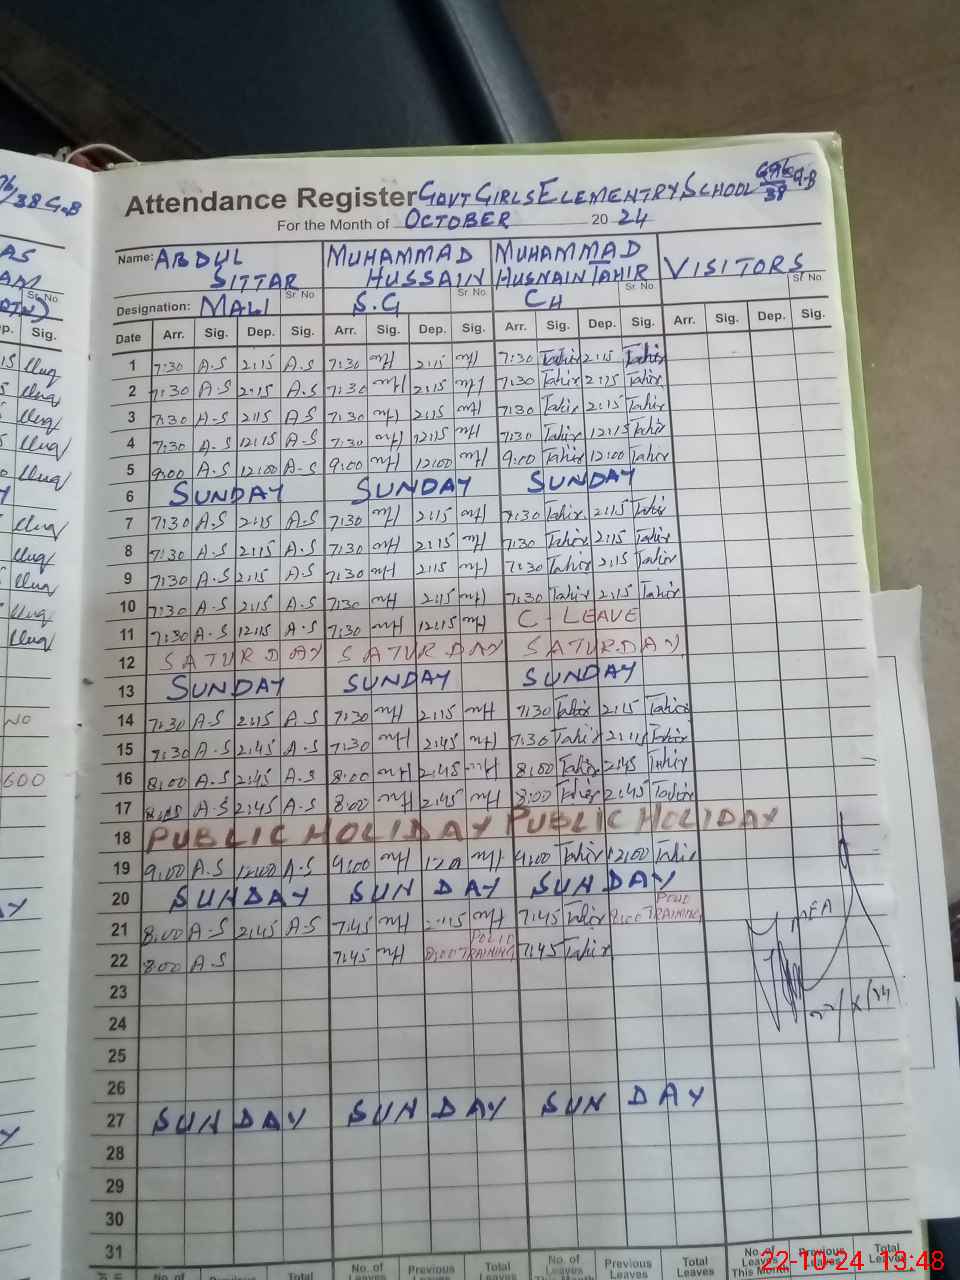 Attendance Register GOVT GIRLS ELEMENTRY SCHOOL
38 G-B
For the Month of OCTOBER 20 24
Name: ABDUL SITTAR MUHAMMAD HUSSAIN MUHAMMAD HUSNAIN TAHIR VISITORS
Sr No Sr No Sr No Sr No
Designation: MALI S.G CH
Date Arr. Sig. Dep. Sig. Arr. Sig. Dep. Sig. Arr. Sig. Dep. Sig. Arr. Sig. Dep. Sig.
1 7:30 A.S 2:15 A.S 7:30 mH 2:15 mH 7:30 Tahir 2:15 Tahir
2 7:30 A.S 2:15 A.S 7:30 mH 2:15 mH 7:30 Tahir 2:15 Tahir
3 7:30 A.S 2:15 A.S 7:30 mH 2:15 mH 7:30 Tahir 2:15 Tahir
4 7:30 A.S 12:15 A.S 7:30 mH 12:15 mH 7:30 Tahir 12:15 Tahir
5 9:00 A.S 12:00 A.S 9:00 mH 12:00 mH 9:00 Tahir 12:00 Tahir
6 SUNDAY SUNDAY SUNDAY
7 7:30 A.S 2:15 A.S 7:30 mH 2:15 mH 7:30 Tahir 2:15 Tahir
8 7:30 A.S 2:15 A.S 7:30 mH 2:15 mH 7:30 Tahir 2:15 Tahir
9 7:30 A.S 2:15 A.S 7:30 mH 2:15 mH 7:30 Tahir 2:15 Tahir
10 7:30 A.S 2:15 A.S 7:30 mH 2:15 mH 7:30 Tahir 2:15 Tahir
11 7:30 A.S 12:15 A.S 7:30 mH 12:15 mH C-LEAVE
12 SATURDAY SATURDAY SATURDAY
13 SUNDAY SUNDAY SUNDAY
14 7:30 A.S 2:15 A.S 7:30 mH 2:15 mH 7:30 Tahir 2:15 Tahir
15 7:30 A.S 2:45 A.S 7:30 mH 2:45 mH 7:30 Tahir Tahir
16 8:00 A.S 2:45 A.S 8:00 mH 2:45 mH 8:00 Tahir 2:45 Tahir
17 A.S 2:45 A.S 8:00 mH 2:45 mH 8:00 Tahir 2:45 Tahir
18 PUBLIC HOLIDAY PUBLIC HOLIDAY
19 9:00 A.S 12:00 A.S 9:00 mH mH 9:00 Tahir 12:00 Tahir
20 SUNDAY SUNDAY SUNDAY
21 8:00 A.S 2:45 A.S 7:45 mH mH 7:45 Tahir 8:00 POLIO TRAINING
22 8:00 A.S 7:45 mH 8:00 POLIO TRAINING 7:45 Tahir
MEA
22/X/24
23
24
25
26
27 SUNDAY SUNDAY SUNDAY
28
29
30
31
No. of Leaves Previous Leaves Total Leaves No. of Leaves This Month Previous Leaves Total Leaves No. of Leaves This Month Previous Leaves Total Leaves
22-10-24 13:48